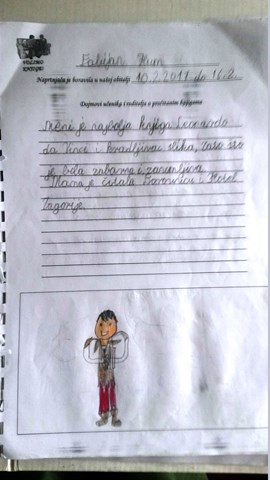 VOLIMO
KNJIGE!
Fabijan Hum
Naprtnjača je boravila u našoj obitelji 10.2.2011 do 16.2.
Dojmovi učenika i roditelja o pročitanim knjigama
Meni je najbolja knjiga Leonardo
da Vinci i slika, zato što
je bila zabavna i zanimljiva.
Mama je čitala i Hotel
Zagorje.